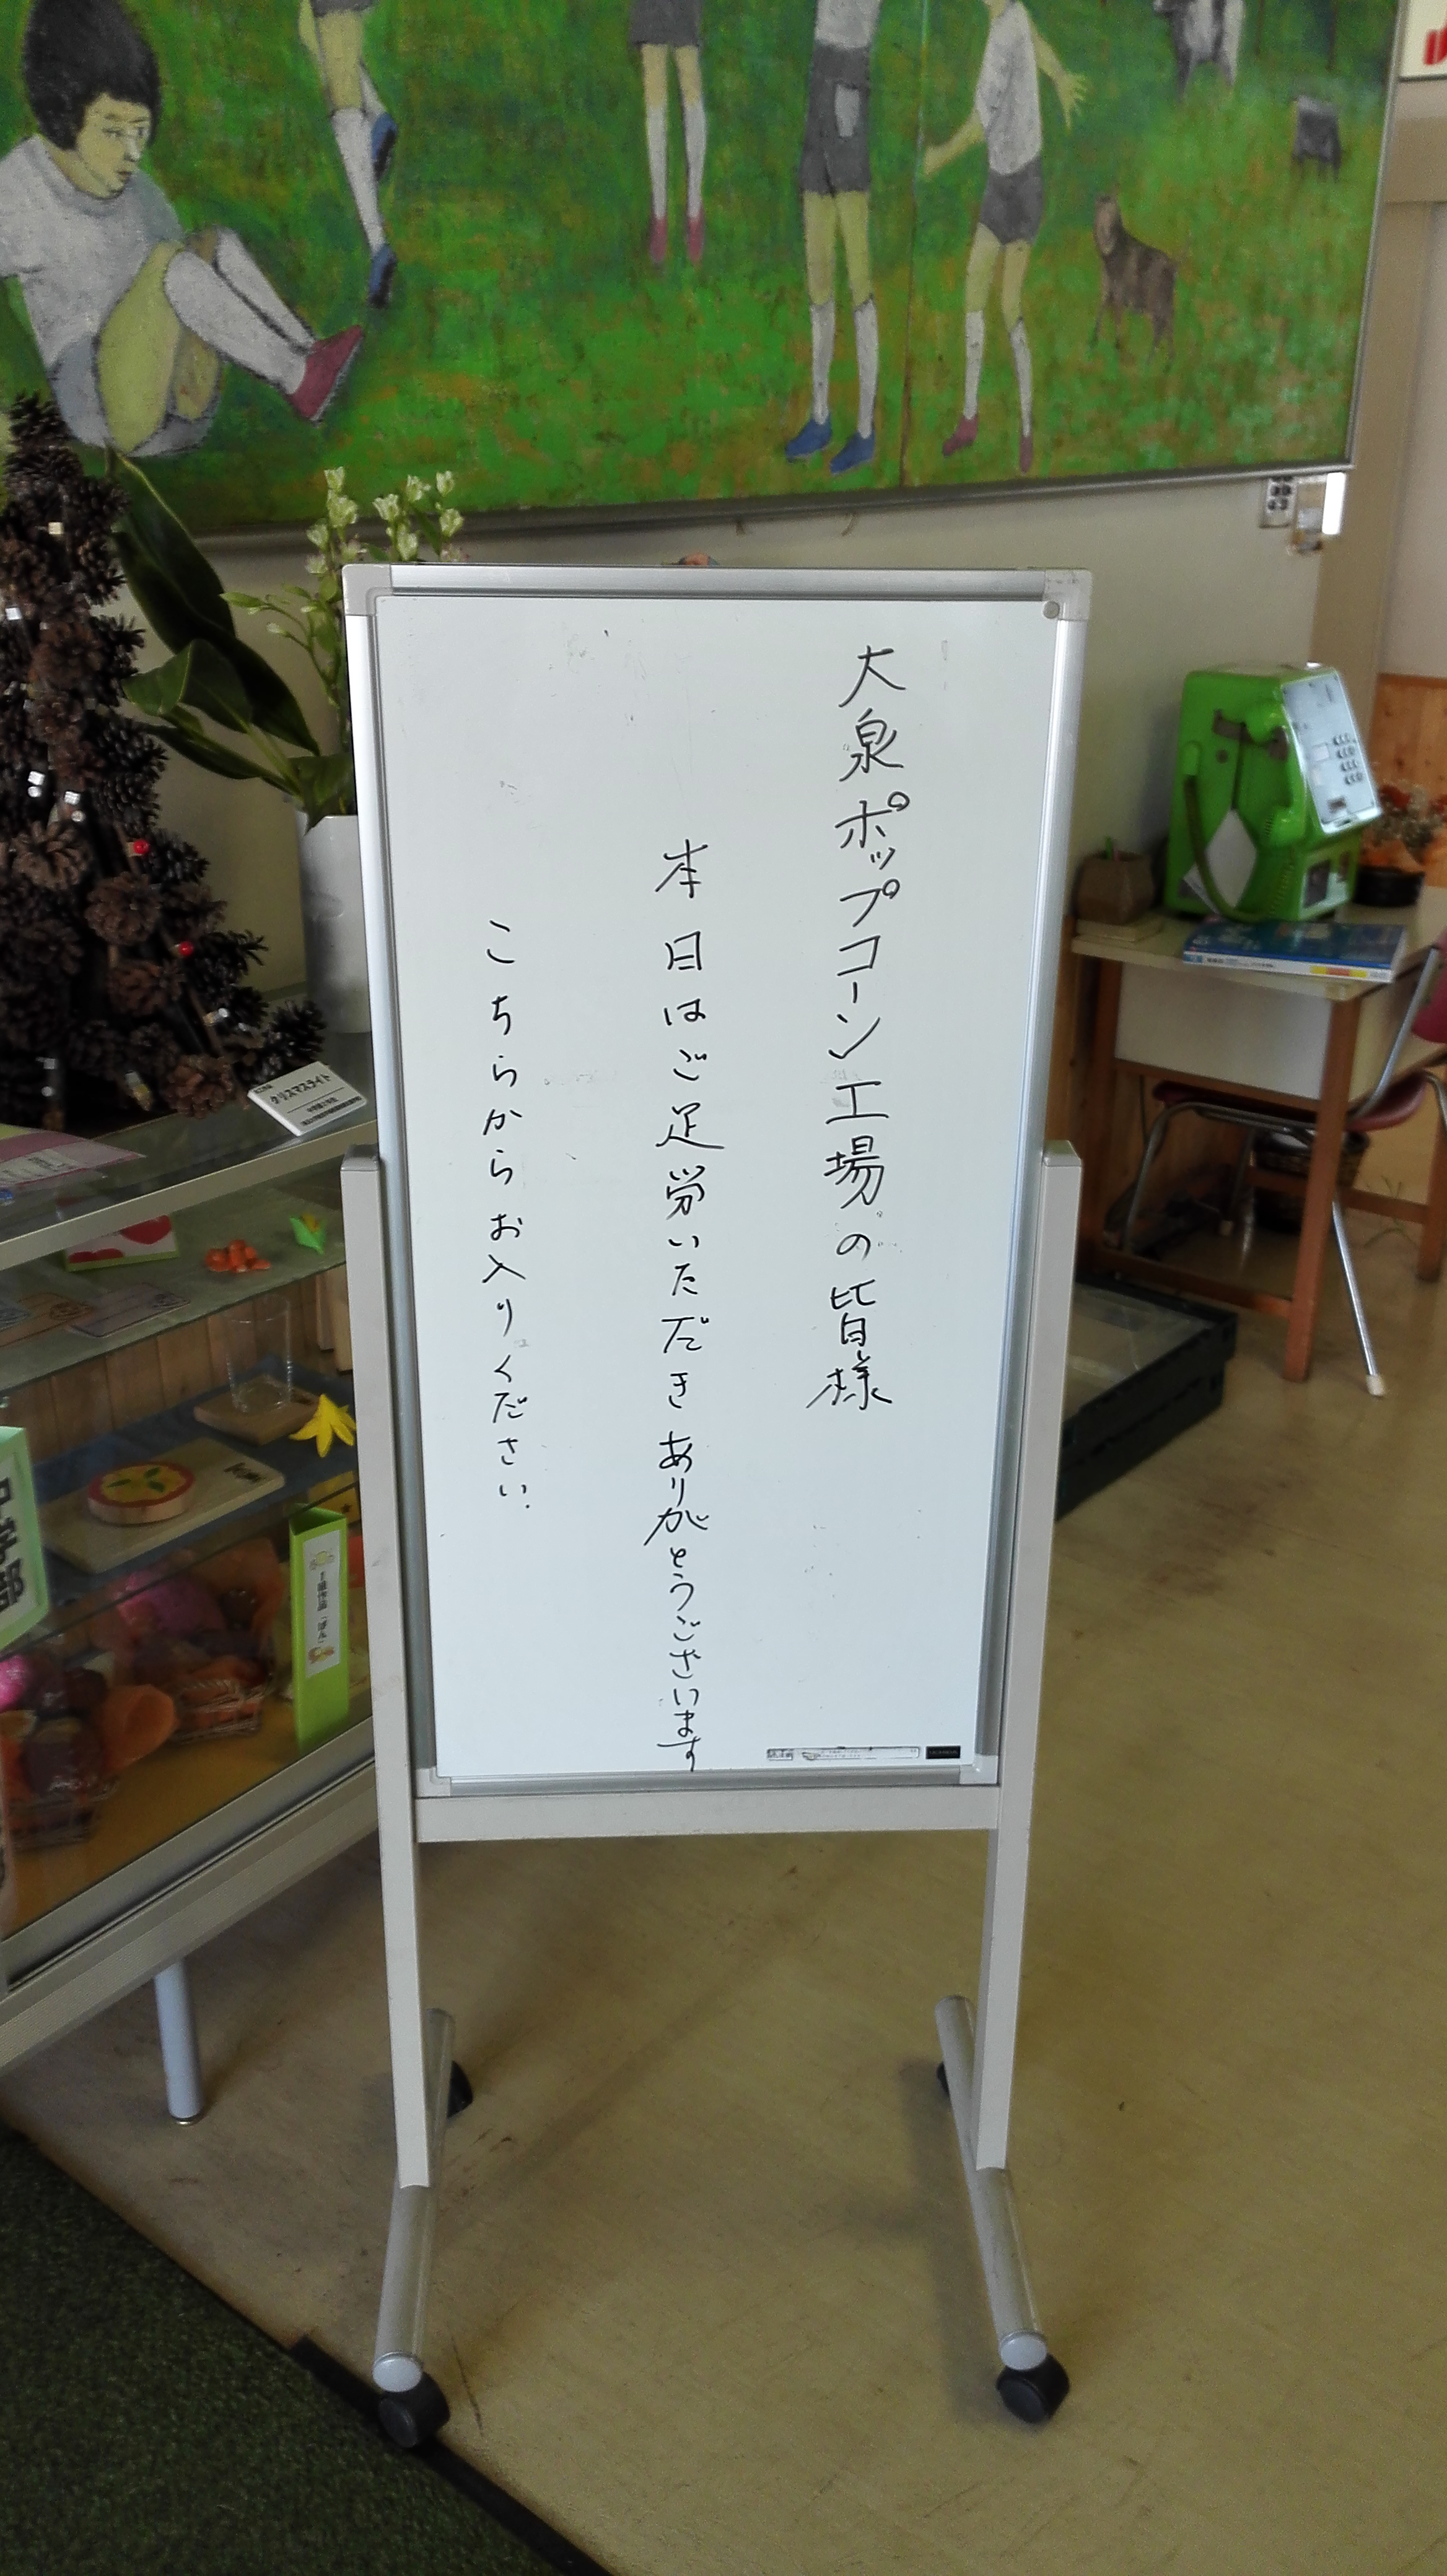 大泉ポップコーン工場の皆様
本日はご足労いただきありがとうございます
こちらからお入りください.
クリスマスライト